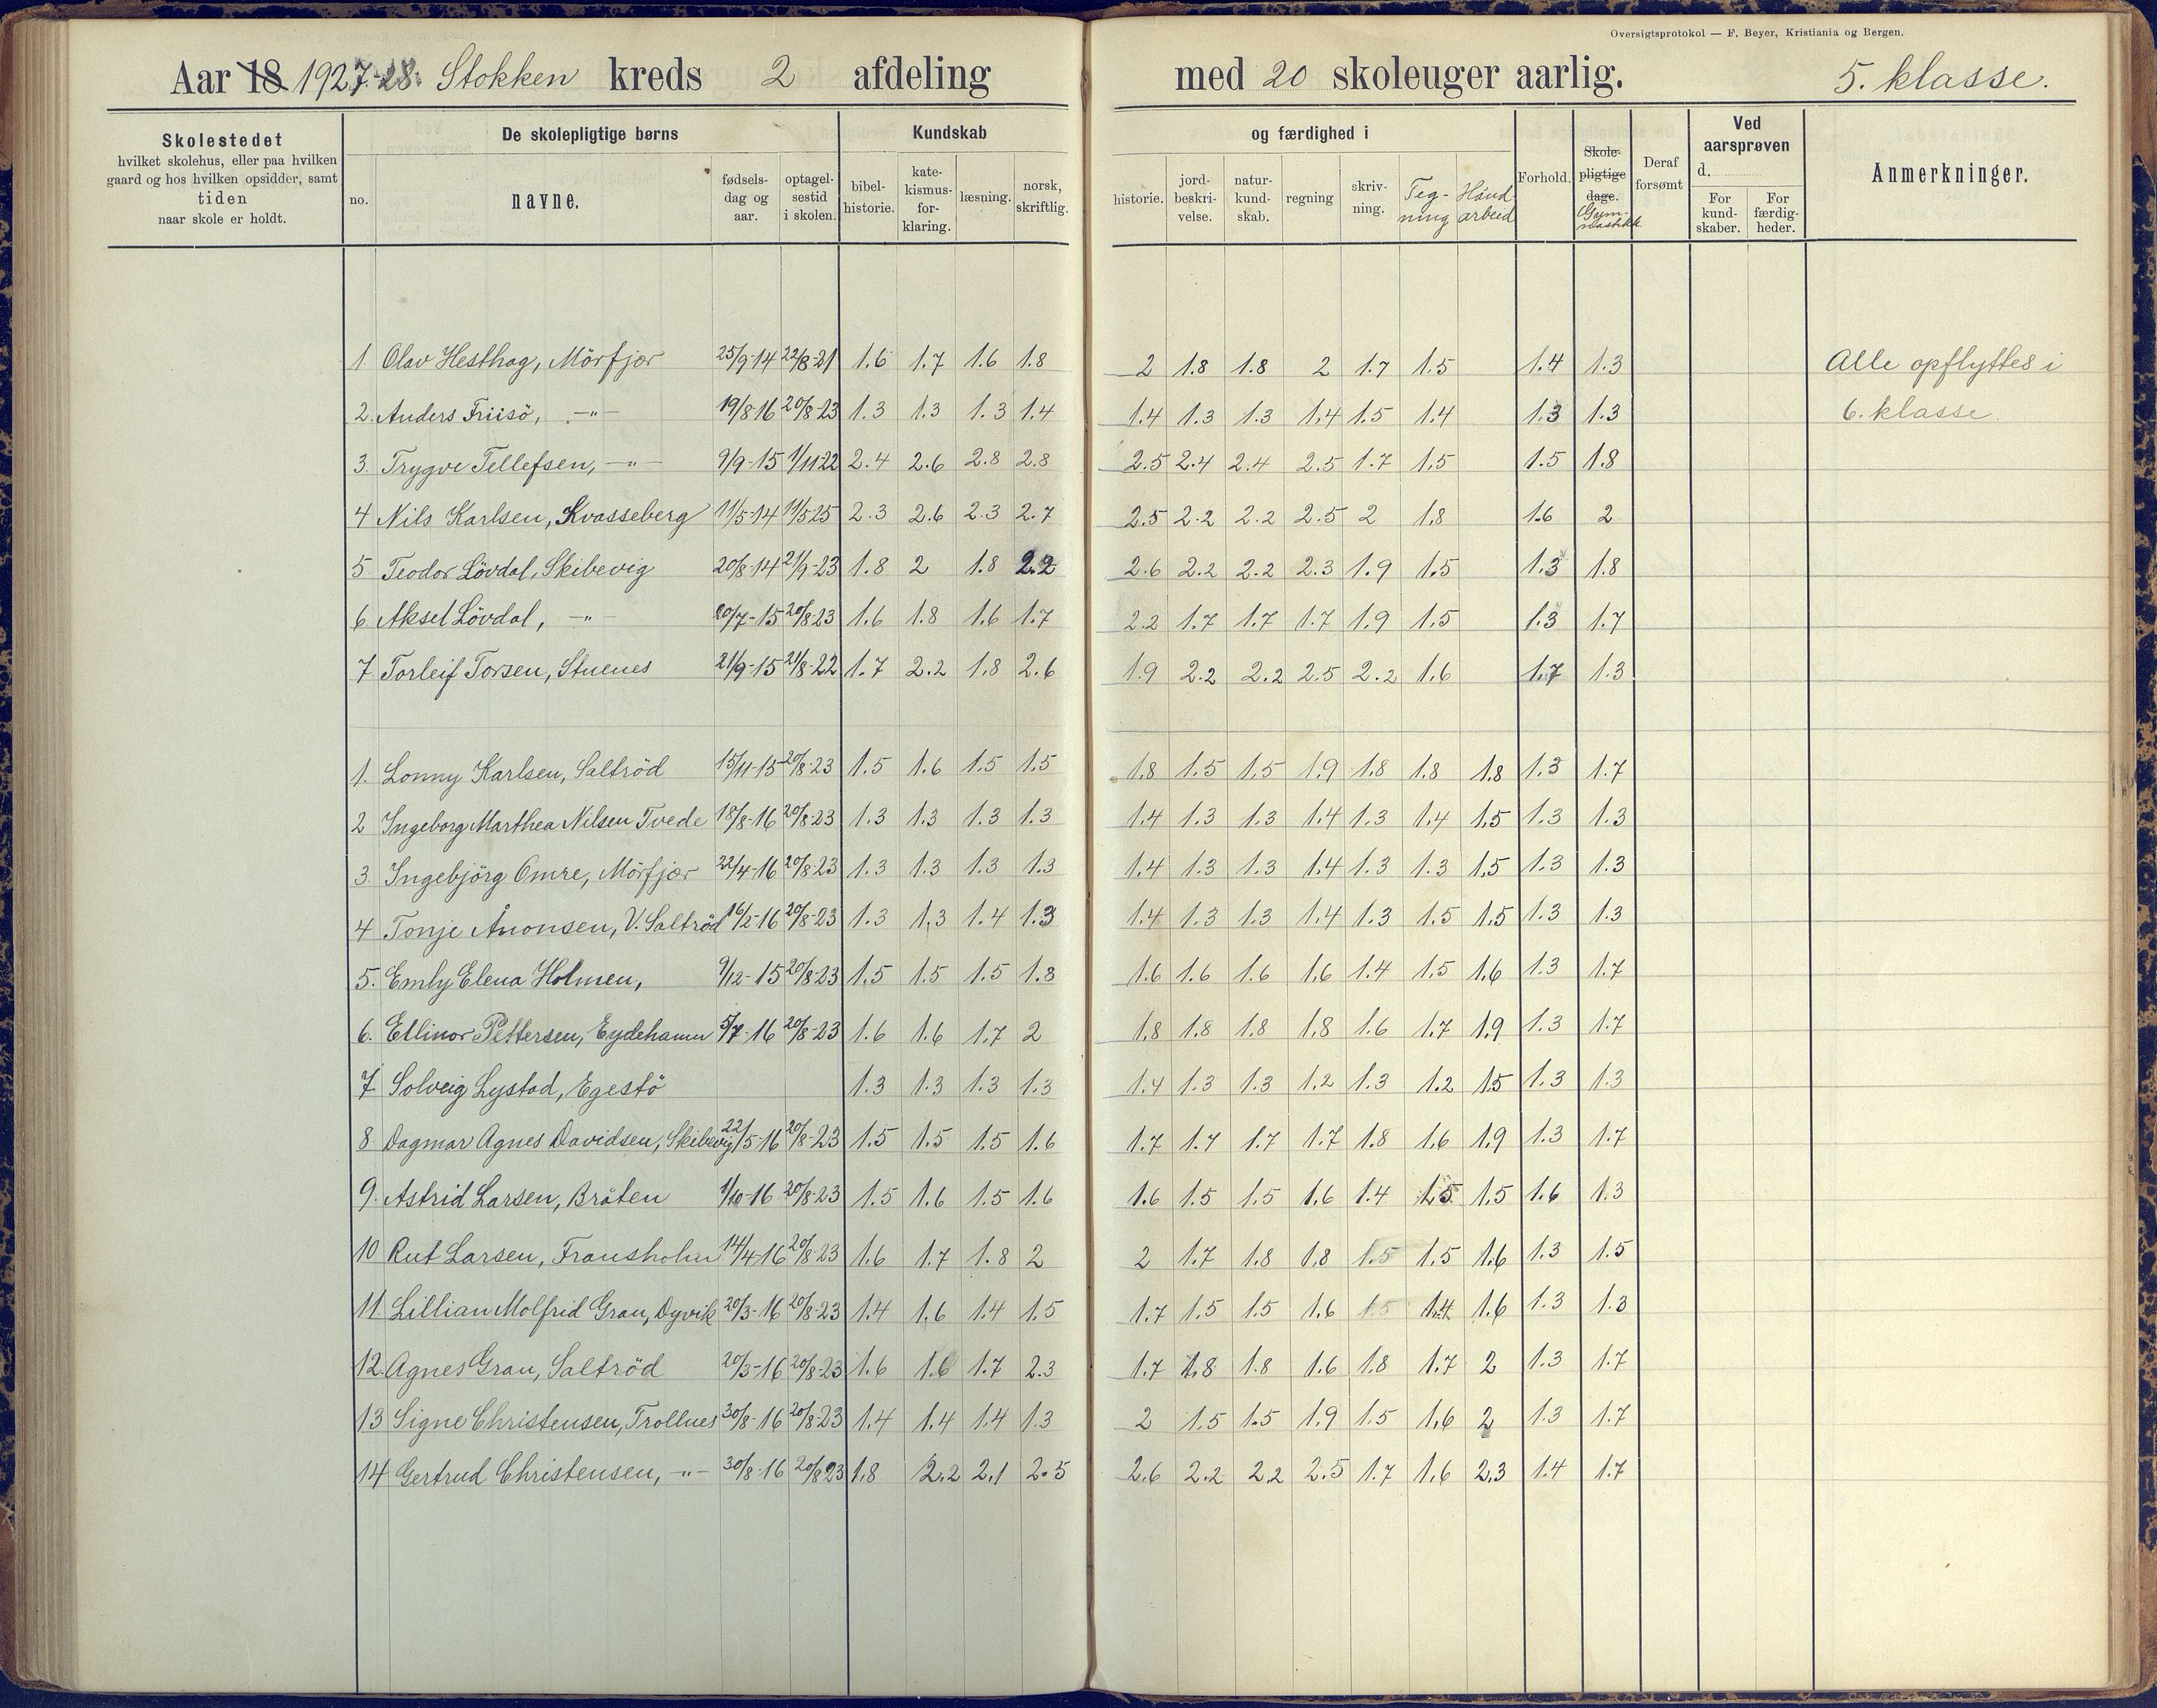 Oversigtsprotokol — F. Beyer, Kristiania og Bergen.
Aar 18 1927-28. Stokken kreds 2 afdeling med 20 skoleuger aarlig. 5. klasse.
Skolestedet hvilket skolehus, eller paa hvilken gaard og hos hvilken opsidder, samt tiden naar skole er holdt.
De skolepligtige børns
no. navne. fødsels-dag og aar. optagel-sestid i skolen.
Kundskab og færdighed i
bibel-historie. kate-kismus-for-klaring. læsning. norsk, skriftlig. historie. jord-beskri-velse. natur-kund-skab. regning skriv-ning. Teg-ning Hånd-arbeid
Forhold. Skole-pligtige dage. Gym-nastikk Deraf forsømt
Ved aarsprøven d.
For kund-skaber. For færdig-heder.
Anmerkninger.
1 Olav Hesthag, Mörfjær 25/9-14 22/8-21 1.6 1.7 1.6 1.8 2 1.8 1.8 2 1.7 1.5 1.4 1.3 Alle opflyttes i
2. Anders Friisö, -"- 19/8-16 20/8-23 1.3 1.3 1.3 1.4 1.4 1.3 1.3 1.4 1.5 1.4 1.3 1.3 6. klasse.
3. Trygve Tellefsen, -"- 9/9-15 1/11-22 2.4 2.6 2.8 2.8 2.5 2.4 2.4 2.5 1.7 1.5 1.5 1.8
4 Nils Karlsen, Kvasseberg 11/5-14 11/5-25 2.3 2.6 2.3 2.7 2.5 2.2 2.2 2.5 2 1.8 1.6 2
5 Teodor Lövdal, Skibevig 20/8-14 21/9-23 1.8 2 1.8 2.2 2.6 2.2 2.2 2.3 1.9 1.5 1.3 1.8
6 Aksel Lövdal, -"- 20/7-15 20/8-23 1.6 1.8 1.6 1.7 2.2 1.7 1.7 1.7 1.9 1.5 1.3 1.7
7 Torleif Torsen, Stuenes 21/9-15 21/8-22 1.7 2.2 1.8 2.6 1.9 2.2 2.2 2.5 2.2 1.6 1.7 1.3
1. Lonny Karlsen, Saltröd 15/11-15 20/8-23 1.5 1.6 1.5 1.5 1.8 1.5 1.5 1.9 1.8 1.8 1.8 1.3 1.7
2 Ingeborg Marthea Nilsen Tvede 18/8-16 20/8-23 1.3 1.3 1.3 1.3 1.4 1.3 1.3 1.4 1.3 1.4 1.5 1.3 1.3
3. Ingebjörg Omre, Mörfjær 22/4-16 20/8-23 1.3 1.3 1.3 1.3 1.4 1.3 1.3 1.4 1.3 1.3 1.5 1.3 1.3
4 Tonje Ånonsen, V. Saltröd 16/2-16 20/8-23 1.3 1.3 1.4 1.3 1.4 1.3 1.3 1.4 1.3 1.5 1.5 1.3 1.3
5. Emly Elena Holmen, 9/12-15 20/8-23 1.5 1.5 1.5 1.8 1.6 1.6 1.6 1.6 1.4 1.5 1.6 1.3 1.7
6. Ellinor Pettersen, Eydehamn 5/7-16 20/8-23 1.6 1.6 1.7 2 1.8 1.8 1.8 1.8 1.6 1.7 1.9 1.3 1.7
7 Solveig Lystad, Egestö 1.3 1.3 1.3 1.3 1.4 1.3 1.3 1.2 1.3 1.2 1.5 1.3 1.3
8 Dagmar Agnes Davidsen, Skibevig 22/5-16 20/8-23 1.5 1.5 1.5 1.6 1.7 1.7 1.7 1.7 1.8 1.6 1.9 1.3 1.7
9. Astrid Larsen, Bråten 1/10-16 20/8-23 1.5 1.6 1.5 1.6 1.6 1.5 1.5 1.6 1.4 1.5 1.5 1.6 1.3
10 Rut Larsen, Fransholm 14/4-16 20/8-23 1.6 1.7 1.8 2 2 1.7 1.8 1.8 1.5 1.5 1.6 1.3 1.5
11. Lillian Molfrid Grau, Dyvik 20/3-16 20/8-23 1.4 1.6 1.4 1.5 1.7 1.5 1.5 1.6 1.5 1.4 1.6 1.3 1.3
12. Agnes Grau, Saltröd 20/3-16 20/8-23 1.6 1.6 1.7 2.3 1.7 1.8 1.8 1.6 1.8 1.7 2 1.3 1.7
13 Signe Christensen, Trollnes 30/8-16 20/8-23 1.4 1.4 1.4 1.3 2 1.5 1.5 1.9 1.5 1.6 2 1.3 1.7
14 Gertrud Christensen, -"- 30/8-16 20/8 23 1.8 2.2 2.1 2.5 2.6 2.2 2.2 2.5 1.7 1.6 2.3 1.4 1.7